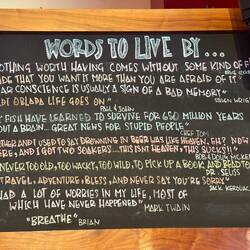 WORDS TO LIVE BY...
NOTHING WORTH HAVING COMES WITHOUT SOME KIND OF F
DE THAT YOU WANT IT MORE THAN YOU ARE AFRAID OF IT"
AR CONSCIENCE IS USUALLY A SIGN OF A BAD MEMORY"
DE OBLADA LIFE GOES ON"
PAUL & JOHN
Y FISH HAVE LEARNED TO SURVIVE FOR 650 MILLION YEARS
OUT A BRAIN... GREAT NEWS FOR STUPID PEOPLE"
CHEF TOM
OTHER AND I USED TO SAY DROWNING IN BEER WAS LIKE HEAVEN, EH? NOW
ERE, AND I GOT TWO SOAKERS... THIS ISN'T HEAVEN, THIS SUCKS!!"
BOB & DOUG MCKEN
NEVER TOO OLD, TOO WACKY, TOO WILD, TO PICK UP A BOOK AND READ TO
DR. SEUSS
TRAVEL, ADVENTURE, BLESS, AND NEVER SAY YOU'RE SORRY"
JACK KEROUAC
HAD A LOT OF WORRIES IN MY LIFE, MOST OF
WHICH HAVE NEVER HAPPENED"
MARK TWAIN
"BREATHE" BRIAN